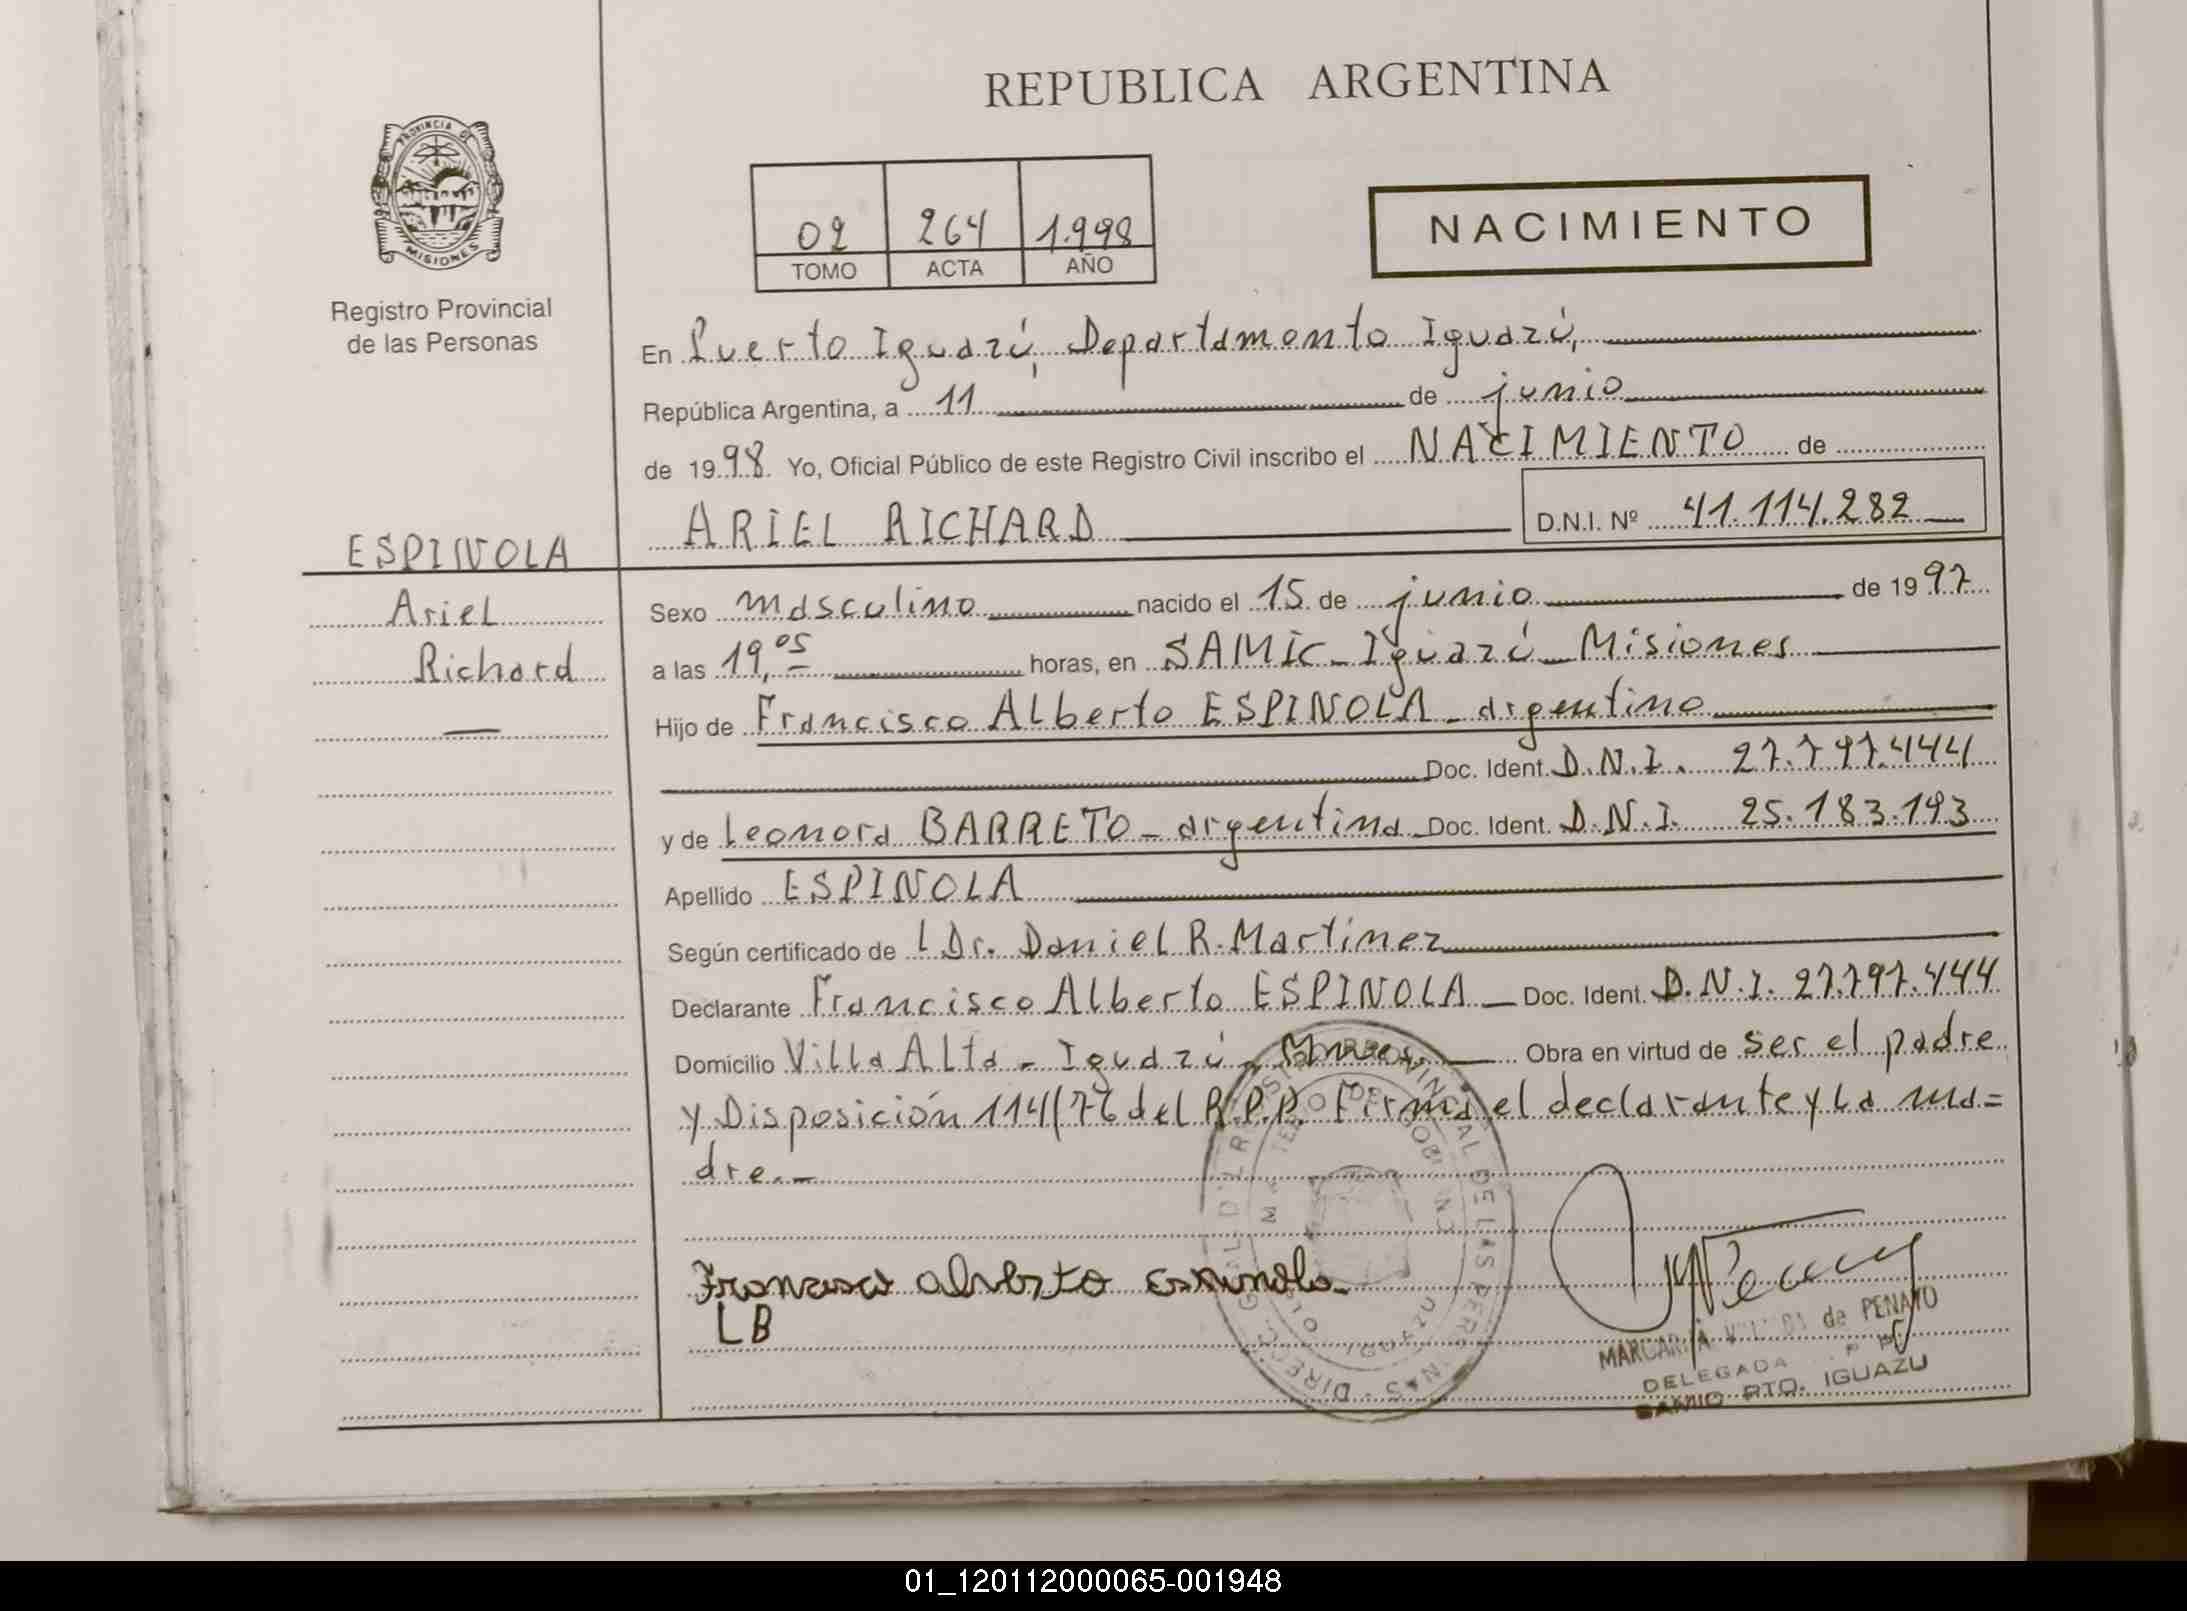 REPUBLICA ARGENTINA
PROVINCIA DE
MISIONES
Registro Provincial
de las Personas
02 264 1.998
TOMO ACTA AÑO
NACIMIENTO
En Puerto Iguazú, Departamento Iguazú,
República Argentina, a 11 de junio
de 1998. Yo, Oficial Público de este Registro Civil inscribo el NACIMIENTO de
ARIEL RICHARD D.N.I. Nº 41.114.282
ESPINOLA
Ariel
Richard
—
Sexo masculino nacido el 15 de junio de 1997
a las 19,05 horas, en SAMIC - Iguazú - Misiones
Hijo de Francisco Alberto ESPINOLA - argentino
Doc. Ident. D.N.I. 27.797.444
y de Leonora BARRETO - argentina Doc. Ident. D.N.I. 25.183.193
Apellido ESPINOLA
Según certificado de L Dr. Daniel R. Martinez
Declarante Francisco Alberto ESPINOLA Doc. Ident. D.N.I. 27.797.444
Domicilio Villa Alta - Iguazú - Mnes. Obra en virtud de ser el padre
y Disposición 114/76 del R.P.P. Firma el declarante y la ma=
dre.-
Francisco Alberto Espinola
LB
de PENAYO
DELEGADA
SAMIC PTO. IGUAZU
01_120112000065-001948